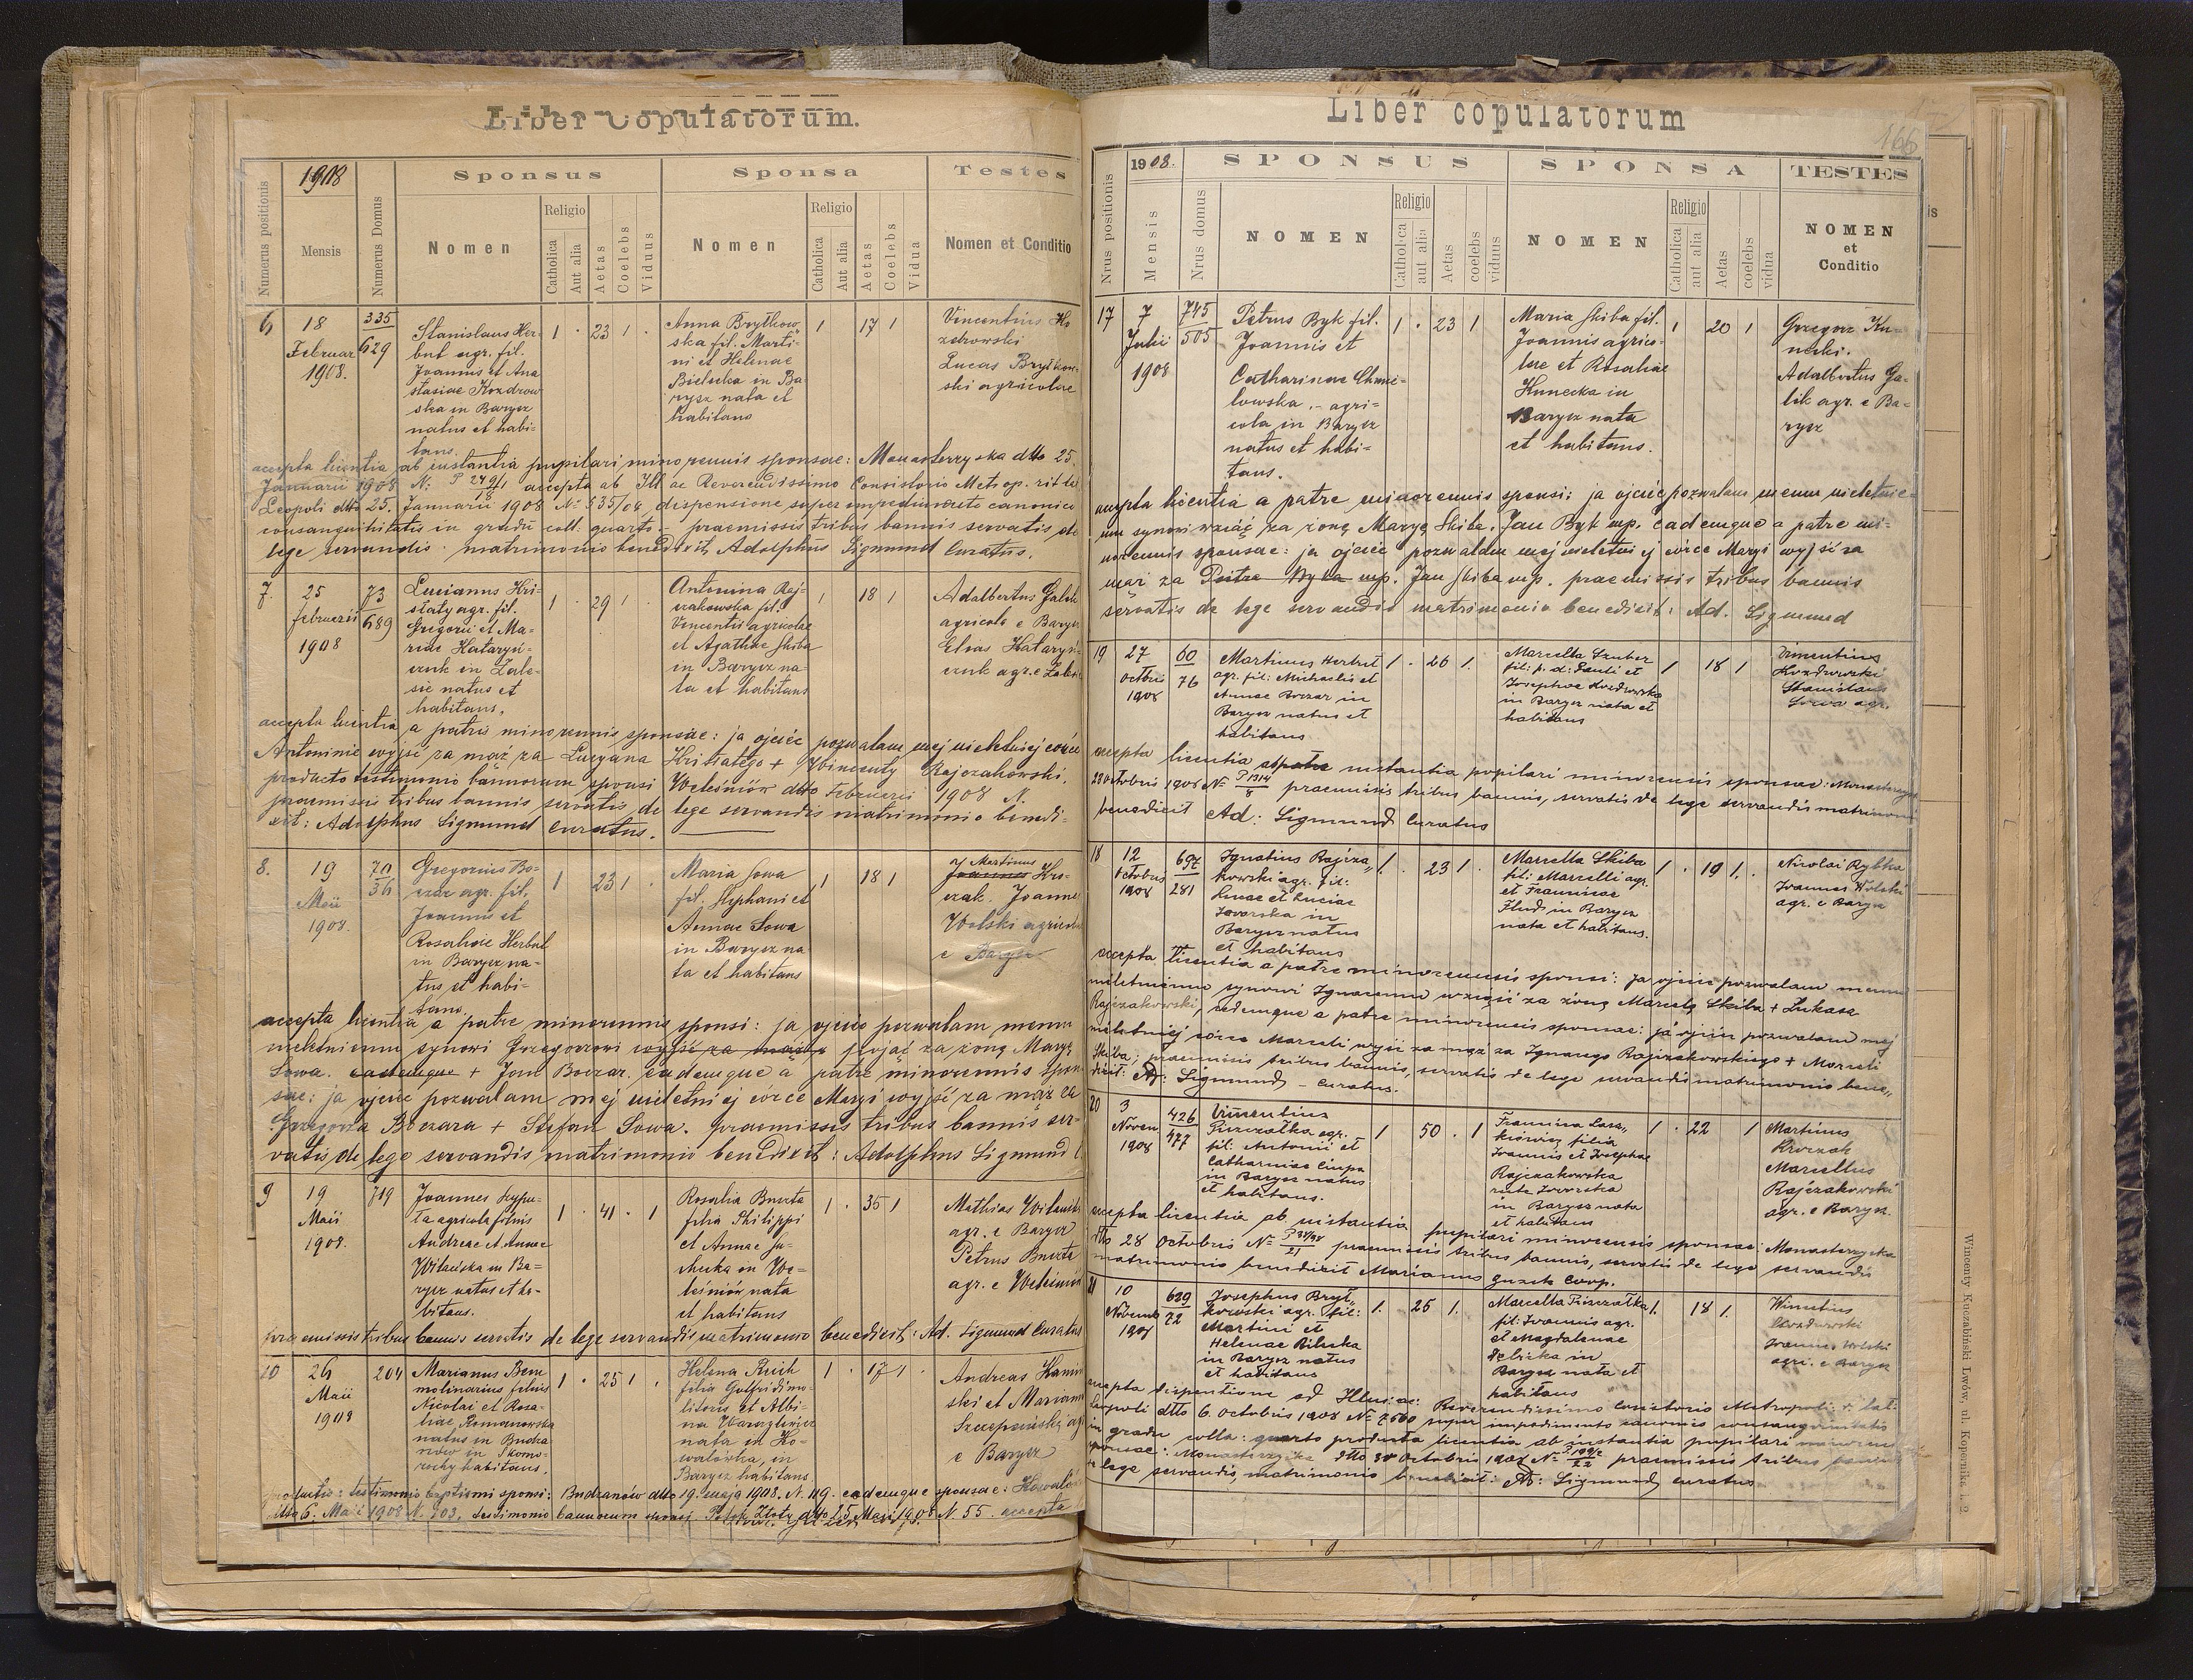 Liber Copulatorum.
Numerus positionis
1908
Mensis
Numerus Domus
Sponsus
Nomen
Religio
Catholica
Aut alia
Aetas
Coelebs
Viduus
Sponsa
Nomen
Religio
Catholica
Aut alia
Aetas
Coelebs
Vidua
Testes
Nomen et Conditio
6
18
Februar
1908.
335
629
Stanislaus Her-
but agr. fil.
Joannis et Ana
stasiae Kozdrow
ska in Barysz
natus et habi-
tans.
1 . 23 1 .
Anna Brytkow-
ska fil. Marti-
ni et Helenae
Bielecka in Ba-
rysz nata et
habitans
1 17 1
Vincentius Ko
zdrowski
Lucas Brytkow-
ski agricolae
accepta licentia ab instantia pupilari minorennis sponsae: Monasterzyska dtto 25.
Januarii 1908 N: P 249/1 18 accepta ab Ill ac Reverendissimo Consistorio Metrop. rit. lat.
Leopoli dtto 25. Januarii 1908 N: 535/08 dispensione super impedimento canonico
consanguinitatis in gradu coll. quarto - praemissis tribus bannis servatis de
lege servandis. matrimonio benedixit, Adolphus Sigmund Curatus.
7.
25
februarii
1908
73
689
Lucianus Hri-
staty agr. fil.
Gregorii et Ma-
riae Kataryń-
czuk in Zale-
sie natus et
habitans,
1 . 29 1 .
Antonina Raj-
czakowska fil.
Vincentii agricolae
et Agathae Skiba
in Barysz na-
ta et habitans
1 18 1
Adalbertus Galik
agricola e Barysz
Elias Kataryń-
czuk agr. e Zalesie
accepta licentia a patris minorennis sponsae: ja ojciec pozwalam mej nieletniej córce
Antoninie wyjść za mąż za Lucyana Hristatego + Wincenty Rajczakowski,
producto testimonio bannorum sponsi Weleśniów dtto Februarii 1908 N.
praemissis tribus bannis servatis de lege servandis matrimonio benedi-
xit: Adolphus Sigmund Curatus.
8.
19
Maii
1908.
70
36
Gregorius Bo-
czar agr. fil.
Joannis et
Rosaliae Herbut
in Barysz na-
tus et habi-
tans
1 23 1 .
Maria Sowa
fil. Stephani et
Annae Sowa
in Barysz na
ta et habitans
1 18 1
Martinus
Joannes Kro-
czak. Joannes
Wolski agricola
e Barysz
accepta licentia a patre minorennis sponsi: ja ojciec pozwalam memu
nieletniemu synowi Grzegorzowi wyjść za mąż pojąć za żonę Maryę
Sowa. eademque + Jan Boczar. eademque a patre minorennis spon
sae: ja ojciec pozwalam mej nieletniej córce Maryi wyjść za mąż za
Grzegorza Boczara + Stefan Sowa. praemissis tribus bannis ser-
vatis de lege servandis matrimonio benedixit: Adolphus Sigmund
9
19
Maii
1908.
719
Joannes
agricola filius
Andreae et Annae
Witwicka in Ba-
rysz natus et ha-
bitans.
1 . 41 . 1
Rosalia Buszta
filia Philippi
et Annae
in We-
leśniów nata
et habitans
1 . 35 1
Mathias
agr. e Barysz
Petrus Buszta
agr. e Weleśniów
praemissis tribus bannis servatis de lege servandis matrimonio benedixit: Ad. Sigmund Curatus
10
26
Maii
1908
204
Marianus Bem
molinarius filius
Nicolai et Rosa-
liae Romanowska
natus in Budza
nów in Skomo-
rochy habitans,
1 . 25 1 .
Helena Reich
filia Gotfridi mo-
litoris et Albi-
na
nata in Ko-
walówka, in
Barysz habitans
1 . 17 1 .
Andreas Kamin
ski et Marianus
Szczepański agr
e Barysz
producto: testimonio baptismi sponsi: Budzanów dtto 19. maja 1908. N. 119. eademque sponsae: Kowalów
dtto 6. Maii 1908 N. 703, testimonio bannorum sponsi Potok Złoty dtto 25 Maii 1908 N. 55. accepta
Liber copulatorum
166
Nrus positionis
1908.
Mensis
Nrus domus
SPONSUS
NOMEN
Religio
Catholica
aut alia
Aetas
coelebs
viduus
SPONSA
NOMEN
Religio
Catholica
aut alia
Aetas
coelebs
vidua
TESTES
NOMEN
et
Conditio
17
7
Julii
1908
745
505
Petrus Byk fil.
Joannis et
Catharinae Chmie-
lowska. - agri-
cola in Barysz
natus et habi-
tans.
1 . 23 1
Maria Skiba fil.
Joannis agrico-
lae et Rosaliae
Kunecka in
Barysz nata
et habitans.
1 20 1
Grzegorz Ku-
necki.
Adalbertus Ga-
lik agr. e Ba-
rysz
accepta licentia a patre minorennis sponsi: ja ojciec pozwalam memu nieletnie-
mu synowi wziąć za żonę Maryę Skiba. Jan Byk mp. eademque a patre mi-
norennis sponsae: ja ojciec pozwalam mej nieletniej córce Maryi wyjść za
mąż za Piotra Byka mp. Jan Skiba mp. praemissis tribus bannis
servatis de lege servandis matrimonio benedixit: Ad. Sigmund
19
27
Octbris
1908
60
76
Martinus Herbut
agr. fil: Michaelis et
Annae Boczar in
Barysz natus et
habitans
1 . 26 1.
Marcella Szuber
fil: p. d: Pauli et
Josephae Kozdrowska
in Barysz nata et
habitans
1 18 1
Vincentius
Kozdrowski
Stanislaus
Sowa agr.
accepta licentia a patre instantia pupilari minorensis sponsae: Monasterzyska
23 octobris 1908 N= P 1314/8 praemissis tribus bannis, servatis de lege servandis matrimonio
benedixit Ad: Sigmund Curatus
18
12
Octobris
1908
697
281
Ignatius Rajcza
kowski agr. fil:
Lucae et Luciae
Jaworska in
Barysz natus
et habitans
1. 23 1.
Marcella Skiba
fil: Marcelli agr.
et Franciscae
Flud in Barysz
nata et habitans.
1 . 19 1.
Nicolai Rybka
Joannes Wolski
agr. e Barysz
accepta licentia a patre minorennis sponsi: Ja ojciec pozwalam memu
nieletniemu synowi Ignacemu wziąść za żonę Marcelę Skiba + Łukasz
Rajczakowski, eademque a patre minorensis sponsae: ja ojciec pozwalam mej
nieletniej córce Marceli wyjść za mąż za Ignacego Rajczakowskiego + Marceli
Skiba; praemissis tribus bannis, servatis de lege servandis matrimonio bene,,
dixit: Ad: Sigmund - Curatus.
20
3
Novem
1908
426
477
Vincentius
Pieczatka agr.
fil. Antonii et
Catharinae Ciupa
in Barysz natus
et habitans.
1 50 . 1
Francisca Lasz,,
kiewicz filia
Joannis et Josephae
Rajczakowska
nata Jaworska
in Barysz nata
et habitans
1 . 22 1
Martinus
Kroczak
Marcellus
Rajczakowski
agr. e Barysz.
accepta licentia ab instantia pupilari minorensis sponsae: Monasterzyska
dtto 28 Octobris N= praemissis tribus bannis, servatis de lege servandis
matrimonio benedixit Marianus Coop.
21
10
Novemb
1908
629
72
Josephus Bryt,,
kowski agr. fil:
Martini et
Helenae Bilecka
in Barysz natus
et habitans
1. 25 1.
Marcella Pieczatka
fil: Joannis agr.
et Magdalenae
in
Barysz nata et
habitans
1. 18 1.
Vincentius
Kozdrowski
Joannes Wolski
agri. e Barysz
accepta dispentione ad Illus: ac: Reverendissimo Consistorio Metropoli: r: lat:
Leopoli dtto 6. Octobris 1908 N= 7560 super impedimento canonis consanguinitatis
in gradu colla: quarto producta licentia ab instantia pupilari minorensis
sponsae: Monasterzyska dtto 30 Octobris 1908 N= praemissis tribus bannis
de lege servandis, matrimonio benedixit: Ad: Sigmund curatus
Wincenty Kuczabiński Lwów, ul. Kopernika l. 2.